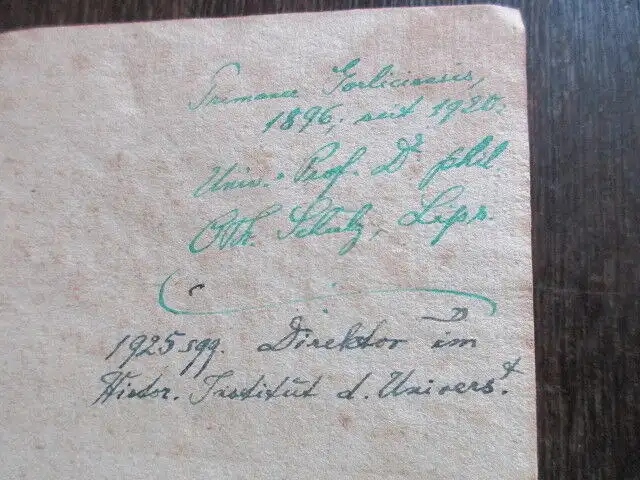 Primaner Gorliciensis,
1896; seit 1920:
Univ.-Prof. Dr phil.
Otth. Schulz, Lips.
1925 sqq. Direktor im
Histor. Institut d. Universt.